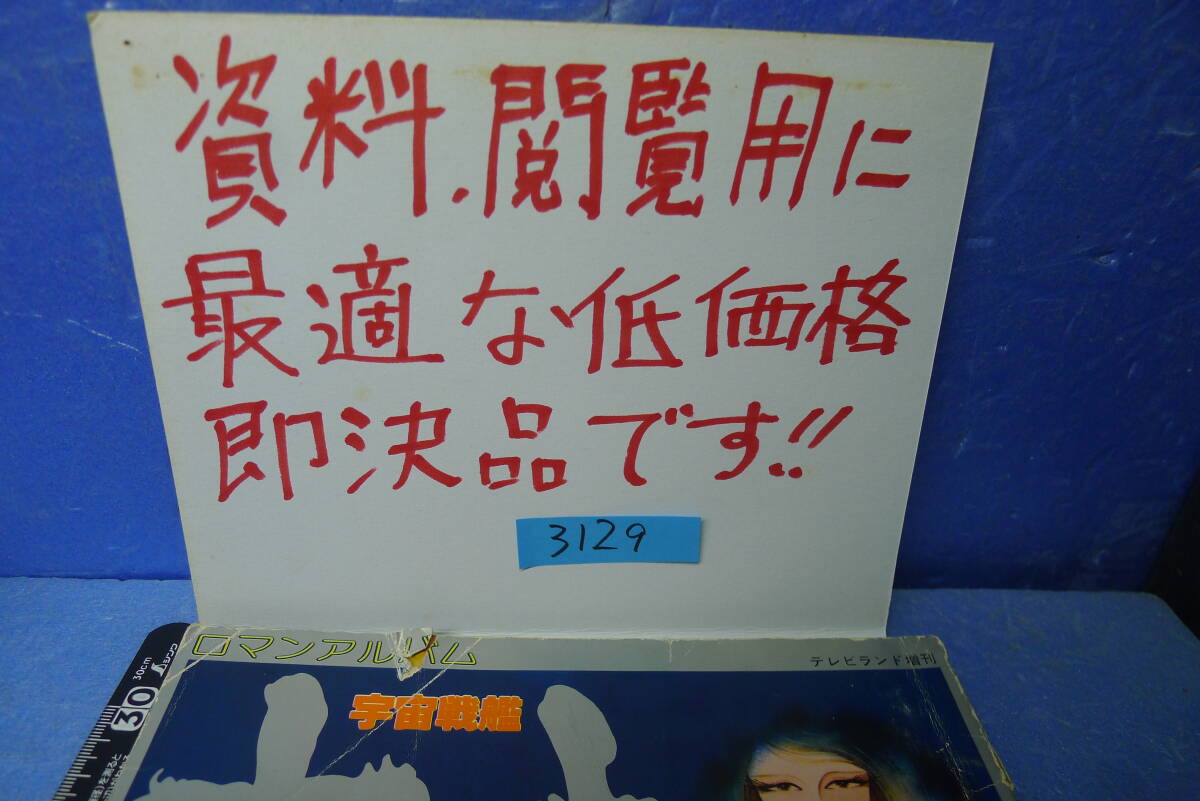 資料.閲覧用に
最適な低価格
即決品です!!
3129
ロマンアルバム
テレビランド増刊
宇宙戦艦
30cm
シンワ
30